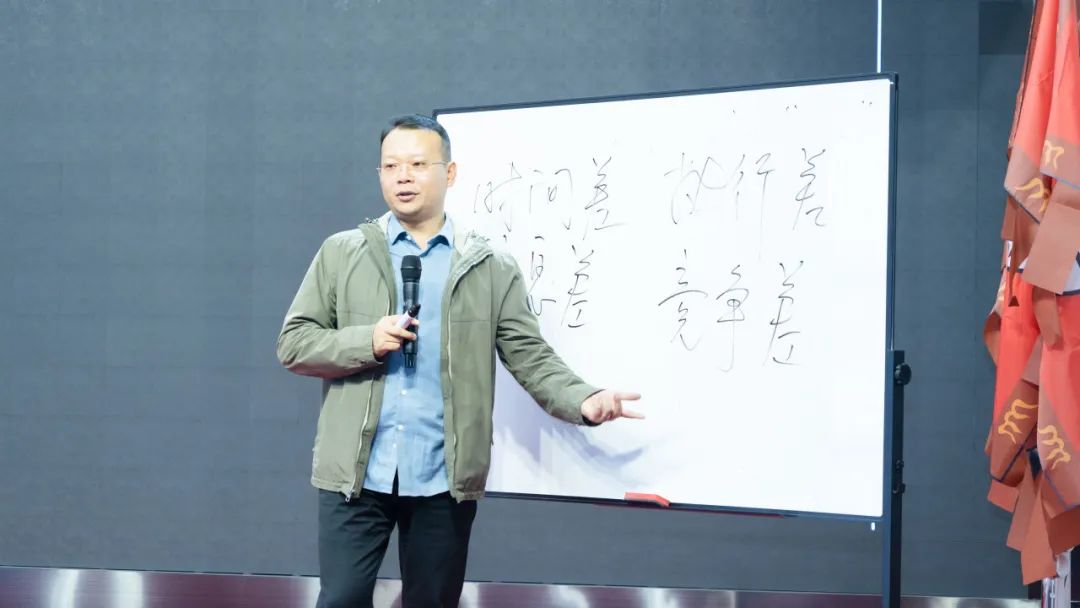 时间差 执行差
息差 竞争差